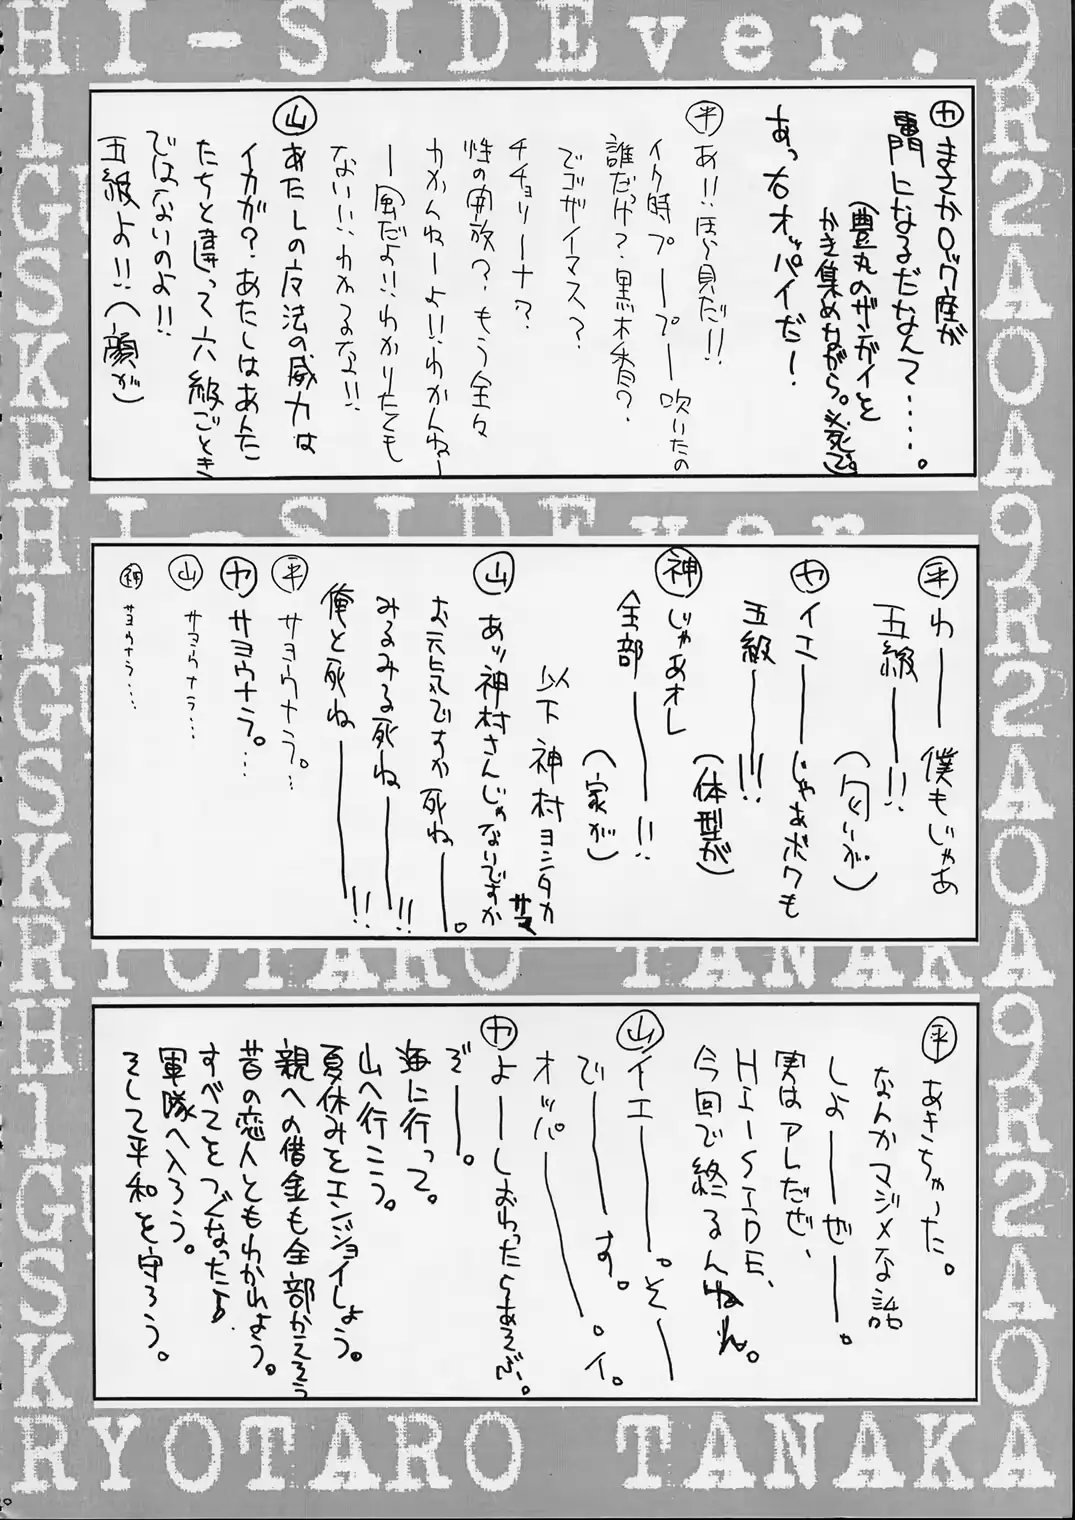 HI-SIDEver.
カ まさかロック座が
専門になるだなんて・・・・。
(豊丸のザンガイを
かき集めながら。必死で。
あっ右オッパイだー!
平 あ!!ほら貝だ!!
イク時プープー吹いたの
誰だっけ?黒木香?
でゴザイマス?
チチョリーナ?
性の開放?もう全々
わかんねーよ!!わかんねー
ー風だよ!!わかりたても
ない!!わかるな!!
山 あたしの反法の威力は
イカが?あたしはあんた
たちと違って六級ごとき
ではないのよ!!
五級よ!!(顔が)
平 わー 僕もじゃあ
五級ー!! (匂いが)
カ イエーじゃあボクも
五級ー!!! (体型が)
神 じゃあオレ
全部ー!! (家が)
以下神村ヨシタカサマ
山 あッ神村さんじゃないですか
お元気ですか死ねー。
みるみる死ねー!!
俺と死ねー!!
平 サヨウナラ。…
カ サヨウナラ。…
山 サヨウナラ…
神 サヨウナラ…
平 あきちゃった。
なんかマジメな話
しよーぜー。
実はアレだぜ、
HI-SIDE、
今回で終るんねん。
山 イエー。そー
でーす。
オッパー。イ。
カ よーしおわったらあそぶ。
ぞー。
海に行って。
山へ行こう。
夏休みをエンジョイしよう。
親への借金も全部かえそう
昔の恋人ともわかれよう。
すべてをつぐなったら
軍隊へ入ろう。
そして平和を守ろう。
RYOTARO TANAKA